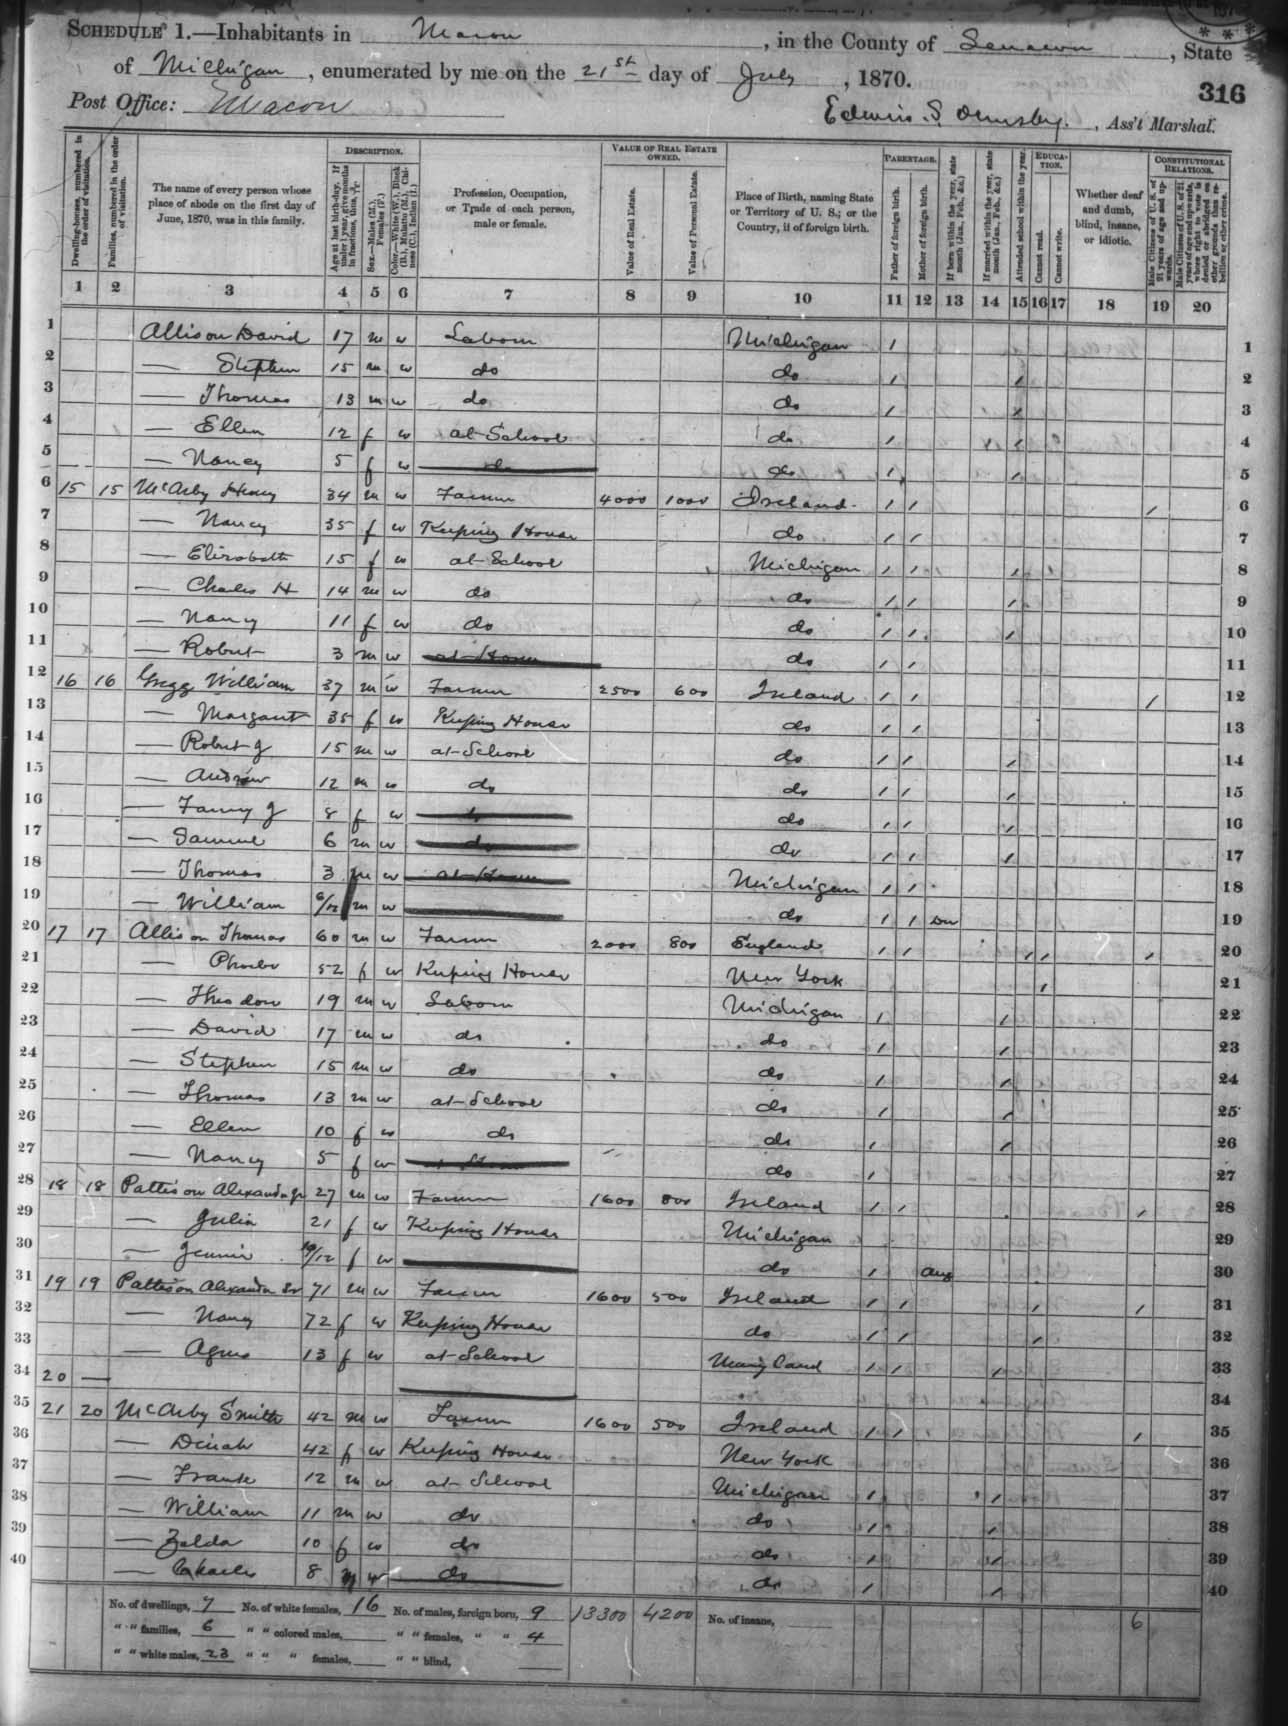 SCHEDULE 1.—Inhabitants in Macon, in the County of Lenawee, State
of Michigan, enumerated by me on the 21st day of July, 1870.
316
Post Office: Macon
Edwin S. Ormsby., Ass't Marshal.
Dwelling-houses, numbered in the order of visitation.
Families, numbered in the order of visitation.
The name of every person whose place of abode on the first day of June, 1870, was in this family.
DESCRIPTION.
Age at last birth-day. If under 1 year, give months in fractions, thus, 3/12.
Sex.—Males (M.), Females (F.)
Color.—White (W.), Black (B.), Mulatto (M.), Chinese (C.), Indian (I.)
Profession, Occupation, or Trade of each person, male or female.
VALUE OF REAL ESTATE OWNED.
Value of Real Estate.
Value of Personal Estate.
Place of Birth, naming State or Territory of U. S.; or the Country, if of foreign birth.
PARENTAGE.
Father of foreign birth.
Mother of foreign birth.
If born within the year, state month (Jan., Feb., &c.)
If married within the year, state month (Jan., Feb., &c.)
Attended school within the year.
EDUCATION.
Cannot read.
Cannot write.
Whether deaf and dumb, blind, insane, or idiotic.
CONSTITUTIONAL RELATIONS.
Male Citizens of U. S. of 21 years of age and upwards.
Male Citizens of U. S. of 21 years of age and upwards, whose right to vote is denied or abridged on other grounds than rebellion or other crime.
1 2 3 4 5 6 7 8 9 10 11 12 13 14 15 16 17 18 19 20
1 Allison David 17 m w Laborer Michigan / 1
2 — Stephen 15 m w do do / / 2
3 — Thomas 13 m w do do / / 3
4 — Ellen 12 f w at School do / / 4
5 — Nancy 5 f w do do / / 5
6 15 15 McArby Henry 34 m w Farmer 4000 1000 Ireland / / / 6
7 — Nancy 35 f w Keeping House do / / 7
8 — Elizabeth 15 f w at School Michigan / / / 8
9 — Charles H 14 m w do do / / / 9
10 — Nancy 11 f w do do / / / 10
11 — Robert 3 m w at Home do / / 11
12 16 16 Gregg William 37 m w Farmer 2500 600 Ireland / / / 12
13 — Margaret 35 f w Keeping House do / / 13
14 — Robert J 15 m w at School do / / / 14
15 — Andrew 12 m w do do / / / 15
16 — Fanny J 8 f w do do / / / 16
17 — Samuel 6 m w do do / / / 17
18 — Thomas 3 m w at Home Michigan / / 18
19 — William 6/12 m w do / / 19
20 17 17 Allison Thomas 60 m w Farmer 2000 800 England / / / / / 20
21 — Phoebe 52 f w Keeping House New York / 21
22 — Theodore 19 m w Laborer Michigan / / 22
23 — David 17 m w do do / / 23
24 — Stephen 15 m w do do / / 24
25 — Thomas 13 m w at School do / / 25
26 — Ellen 10 f w do do / / 26
27 — Nancy 5 f w at Home do / 27
28 18 18 Pattison Alexander Jr 27 m w Farmer 1600 800 Ireland / / / 28
29 — Julia 21 f w Keeping House Michigan 29
30 — Jennie 10/12 f w do / Aug 30
31 19 19 Pattison Alexander Sr 71 m w Farmer 1600 500 Ireland / / / / 31
32 — Nancy 72 f w Keeping House do / / / 32
33 — Agnes 13 f w at School Maryland / / / 33
34 20 — 34
35 21 20 McArby Smith 42 m w Farmer 1600 500 Ireland / / / 35
36 — Dinah 42 f w Keeping House New York 36
37 — Frank 12 m w at School Michigan / / 37
38 — William 11 m w do do / / 38
39 — Zelda 10 f w do do / / 39
40 — Charles 8 m w do do / / 40
No. of dwellings, 7 No. of white females, 16 No. of males, foreign born, 9 13300 4200 No. of insane, 6
" " families, 6 " " colored males, " " females, " " 4
" " white males, 23 " " " females, " " blind,